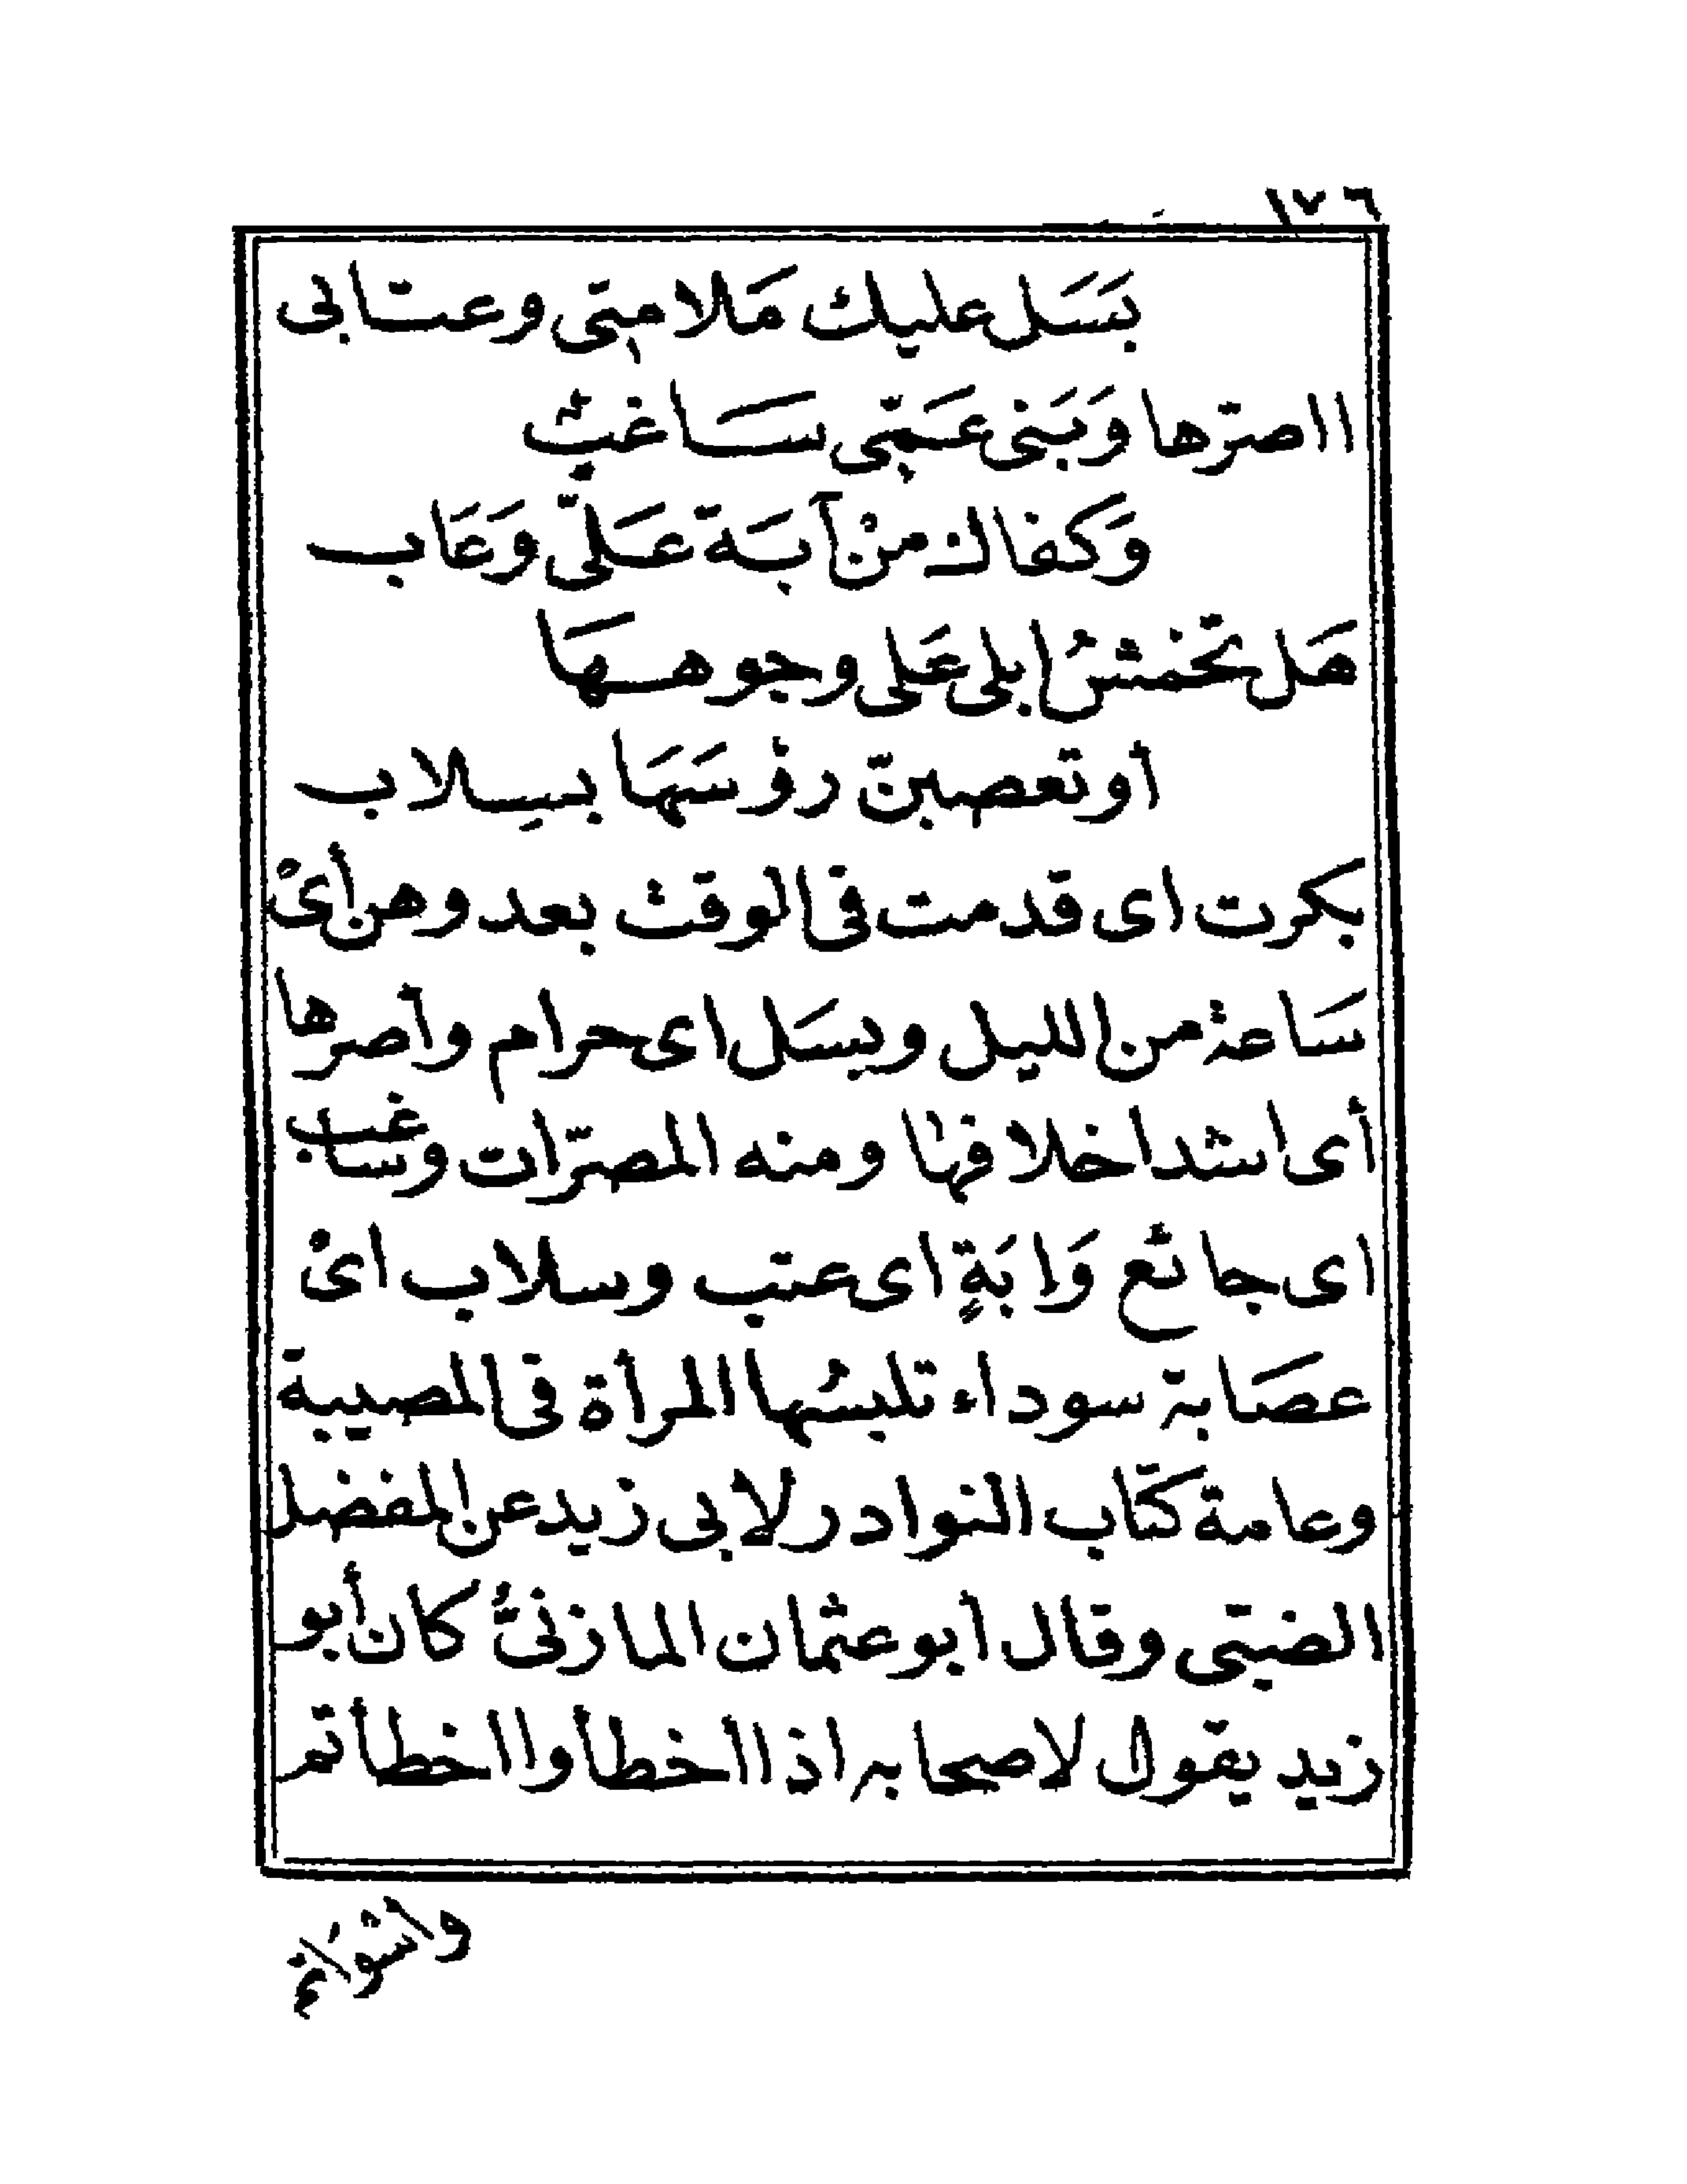 ١٧٦
بَسَل عليك مَلامتى وعتابى
ااصرّها وَبَنى عَمّى سَاغبٌ
وَكفاك منْ آبَة عَلىّ وَعَاب
هَل تخمشُ ابلى عَلى وجوههَا
أو تعصبنّ رؤسَهَا بسِلاب
بكرت اى قدمت فى الوقت بعد وهن أىْ
سَاعة من الليل وبسَل اى حرام وأصرها
أى اشد اخلافها ومنه المصرّات وساغب
اى جائع وَابَةٍ اى عتب وسلاب اىْ
عصَابة سوداء تلبسُها المرأة فى المصيبة
وعامة كتَاب النوادر لابى زيد عن المفضل
الضبّى وقال أبو عثمان المازنىُّ كان أبو
زيد يقول لاصحابه اذا اخطأوا اخطأتم